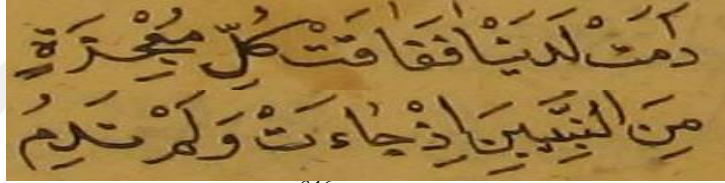 دَامَتْ لَدَيْنَا فَفَاقَتْ كُلَّ مُعْجِزَةٍ
مِنَ النَّبِيِّينَ إِذْ جَاءَتْ وَلَمْ تَدُمِ